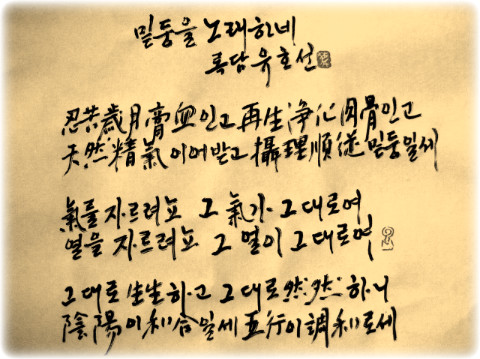 밑둥을 노래하네
록담 유호선
忍苦歲月膏血인고 再生淨化肉骨인고
天然精氣이어받고 攝理順従 밑둥일세
氣를 자르려뇨 그 氣가 그대로여
열을 자르려뇨 그 열이 그대로여
그대로 生生하고 그대로 然然하니
陰陽이 和合일세 五行이 調和로세